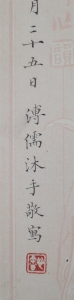 月二十五日溥儒沐手敬寫